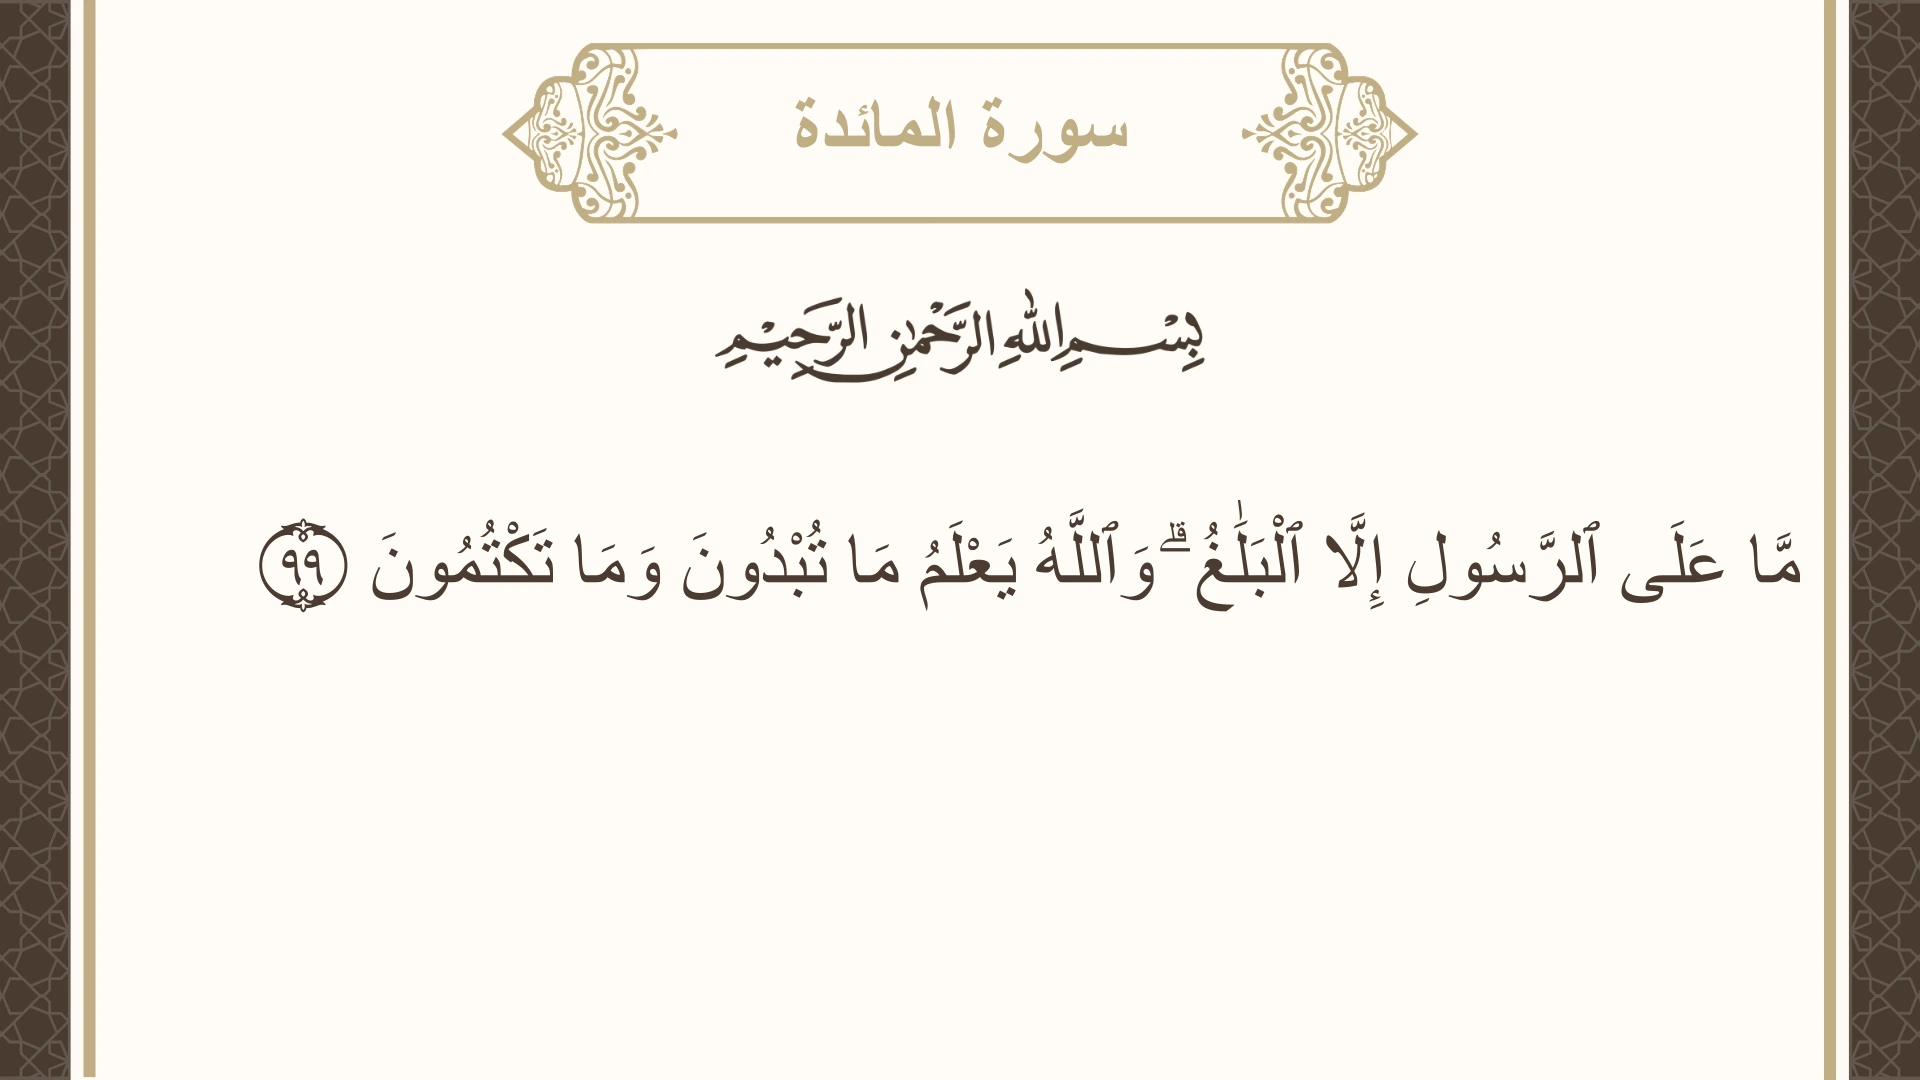 سورة المائدة
بِسْمِ اللهِ الرَّحْمٰنِ الرَّحِيْمِ
مَّا عَلَى ٱلرَّسُولِ إِلَّا ٱلْبَلَٰغُ ۗ وَٱللَّهُ يَعْلَمُ مَا تُبْدُونَ وَمَا تَكْتُمُونَ ٩٩